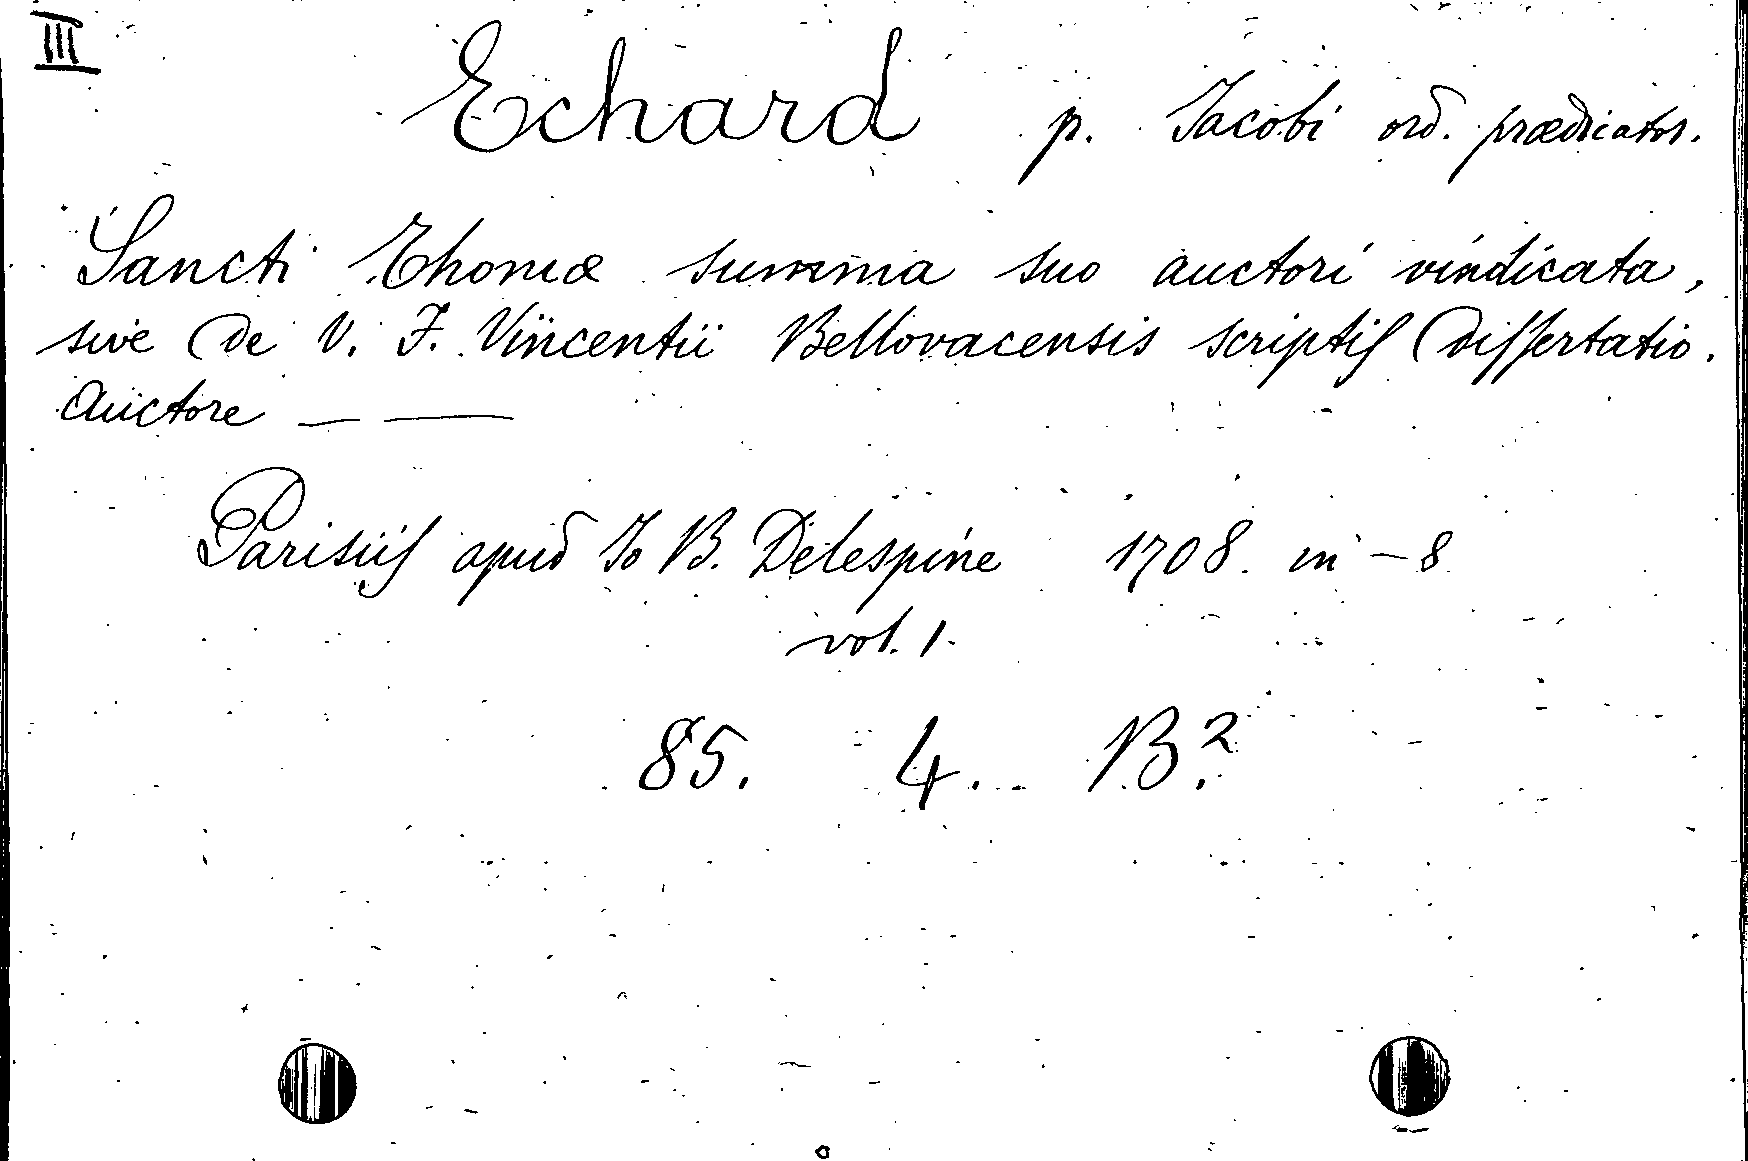 III
Echard p. Jacobi ord. prædicator.
Sancti Thomæ summa suo auctori vindicata,
sive de V. F. Vincentii Bellovacensis scriptis dissertatio.
Auctore — ——
Parisiis apud Jo B. Delespine 1708. in-8
vol. 1.
85. 4. B².